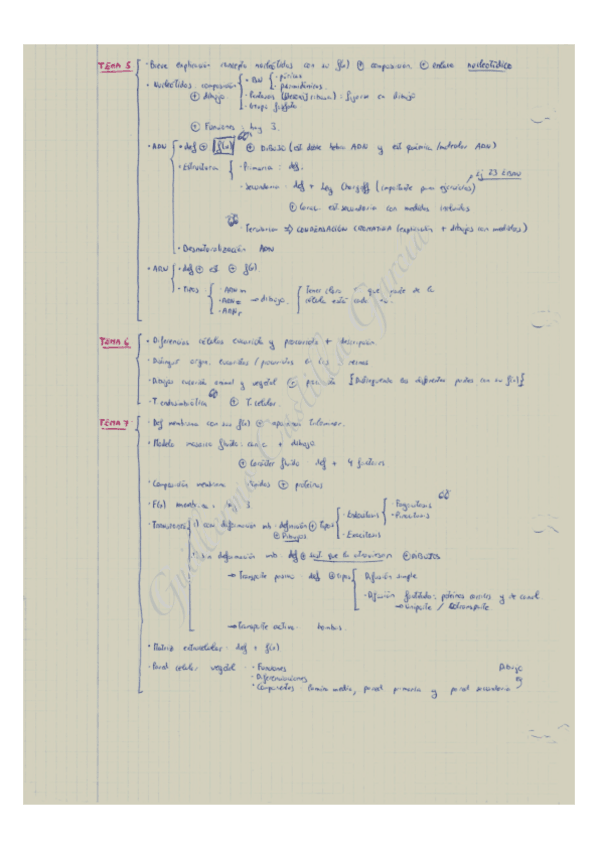 TEMA 5
· Breve explicación concepto nucleótidos con su f(x) ⊕ composición ⊕ enlace nucleotídico
· Nucleótidos composición · BN · púricas
· pirimidínicas
⊕ dibujo · Pentosa : figuran en dibujo
· Grupo fosfato
⊕ Funciones : hay 3.
· ADN · def ⊕ f(x) ⊕ Dibujo (est doble hebra ADN y est química ADN)
· Estructura · Primaria : def.
Ej 23 EBAU
· Secundaria : def + Ley Chargaff (importante para ejercicios)
⊕ est secundaria con medidas
· Terciaria ⇒ CONDENSACIÓN CROMATINA (explicación + dibujos con medidas)
· Desnaturalización ADN
· ARN · def ⊕ est ⊕ f(x).
· Tipos · ARNm Tener claro que parte de la
→ dibujo. célula está cada
· ARNr
TEMA 6
· Diferencias células eucariota y procariota + descripción.
· Distinguir orga. eucariotas / procariotas en los reinos
· Dibujos eucariota animal y vegetal ⊕ [ las diferentes partes con su f(x)]
· T. endosimbiótica ⊕ T. celular.
TEMA 7
· Def membrana con su f(x) ⊕ apariencia trilaminar.
· Modelo mosaico fluido : + dibujo
⊕ Carácter fluido def + 4 factores
· Composición membrana lípidos ⊕ proteínas
· F(x) 3
· TRANSPORTE · 1) con deformación mb · definición ⊕ Tipos · Endocitosis · Fagocitosis
· Pinocitosis
⊕ Dibujos · Exocitosis
deformación mb · def ⊕ que la atraviesan ⊕ DIBUJOS
→ Transporte pasivo · def ⊕ tipos · Difusión simple
· Difusión facilitada : y de canal
→ uniporte /
→ Transporte activo bombas.
· Matriz extracelular · def + f(x)
· Pared celular vegetal · Funciones
· Diferenciaciones
Dibujo
· Componentes : lámina media, pared primaria y pared secundaria
Guillermo Castilleja García